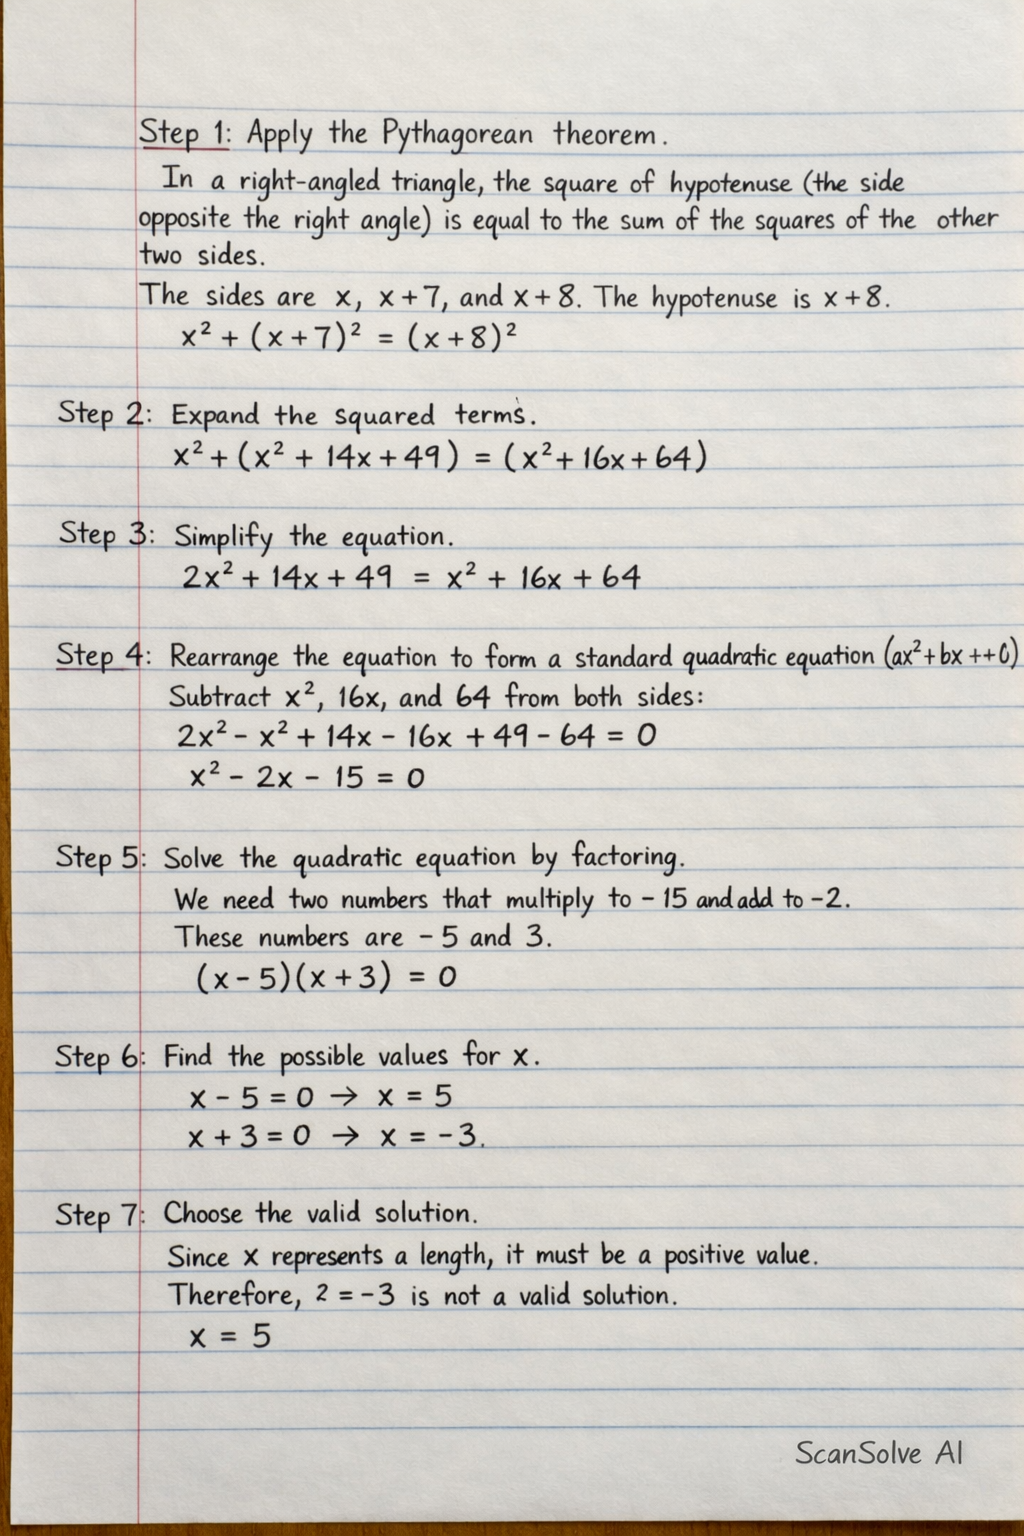 Step 1: Apply the Pythagorean theorem.
In a right-angled triangle, the square of hypotenuse (the side
opposite the right angle) is equal to the sum of the squares of the other
two sides.
The sides are x, x+7, and x+8. The hypotenuse is x+8.
x² + (x+7)² = (x+8)²
Step 2: Expand the squared terms.
x² + (x² + 14x + 49) = (x² + 16x + 64)
Step 3: Simplify the equation.
2x² + 14x + 49 = x² + 16x + 64
Step 4: Rearrange the equation to form a standard quadratic equation (ax²+bx ++0)
Subtract x², 16x, and 64 from both sides:
2x² - x² + 14x - 16x + 49 - 64 = 0
x² - 2x - 15 = 0
Step 5: Solve the quadratic equation by factoring.
We need two numbers that multiply to -15 and add to -2.
These numbers are -5 and 3.
(x-5)(x+3) = 0
Step 6: Find the possible values for x.
x - 5 = 0 → x = 5
x + 3 = 0 → x = -3.
Step 7: Choose the valid solution.
Since x represents a length, it must be a positive value.
Therefore, 2 = -3 is not a valid solution.
x = 5
ScanSolve AI